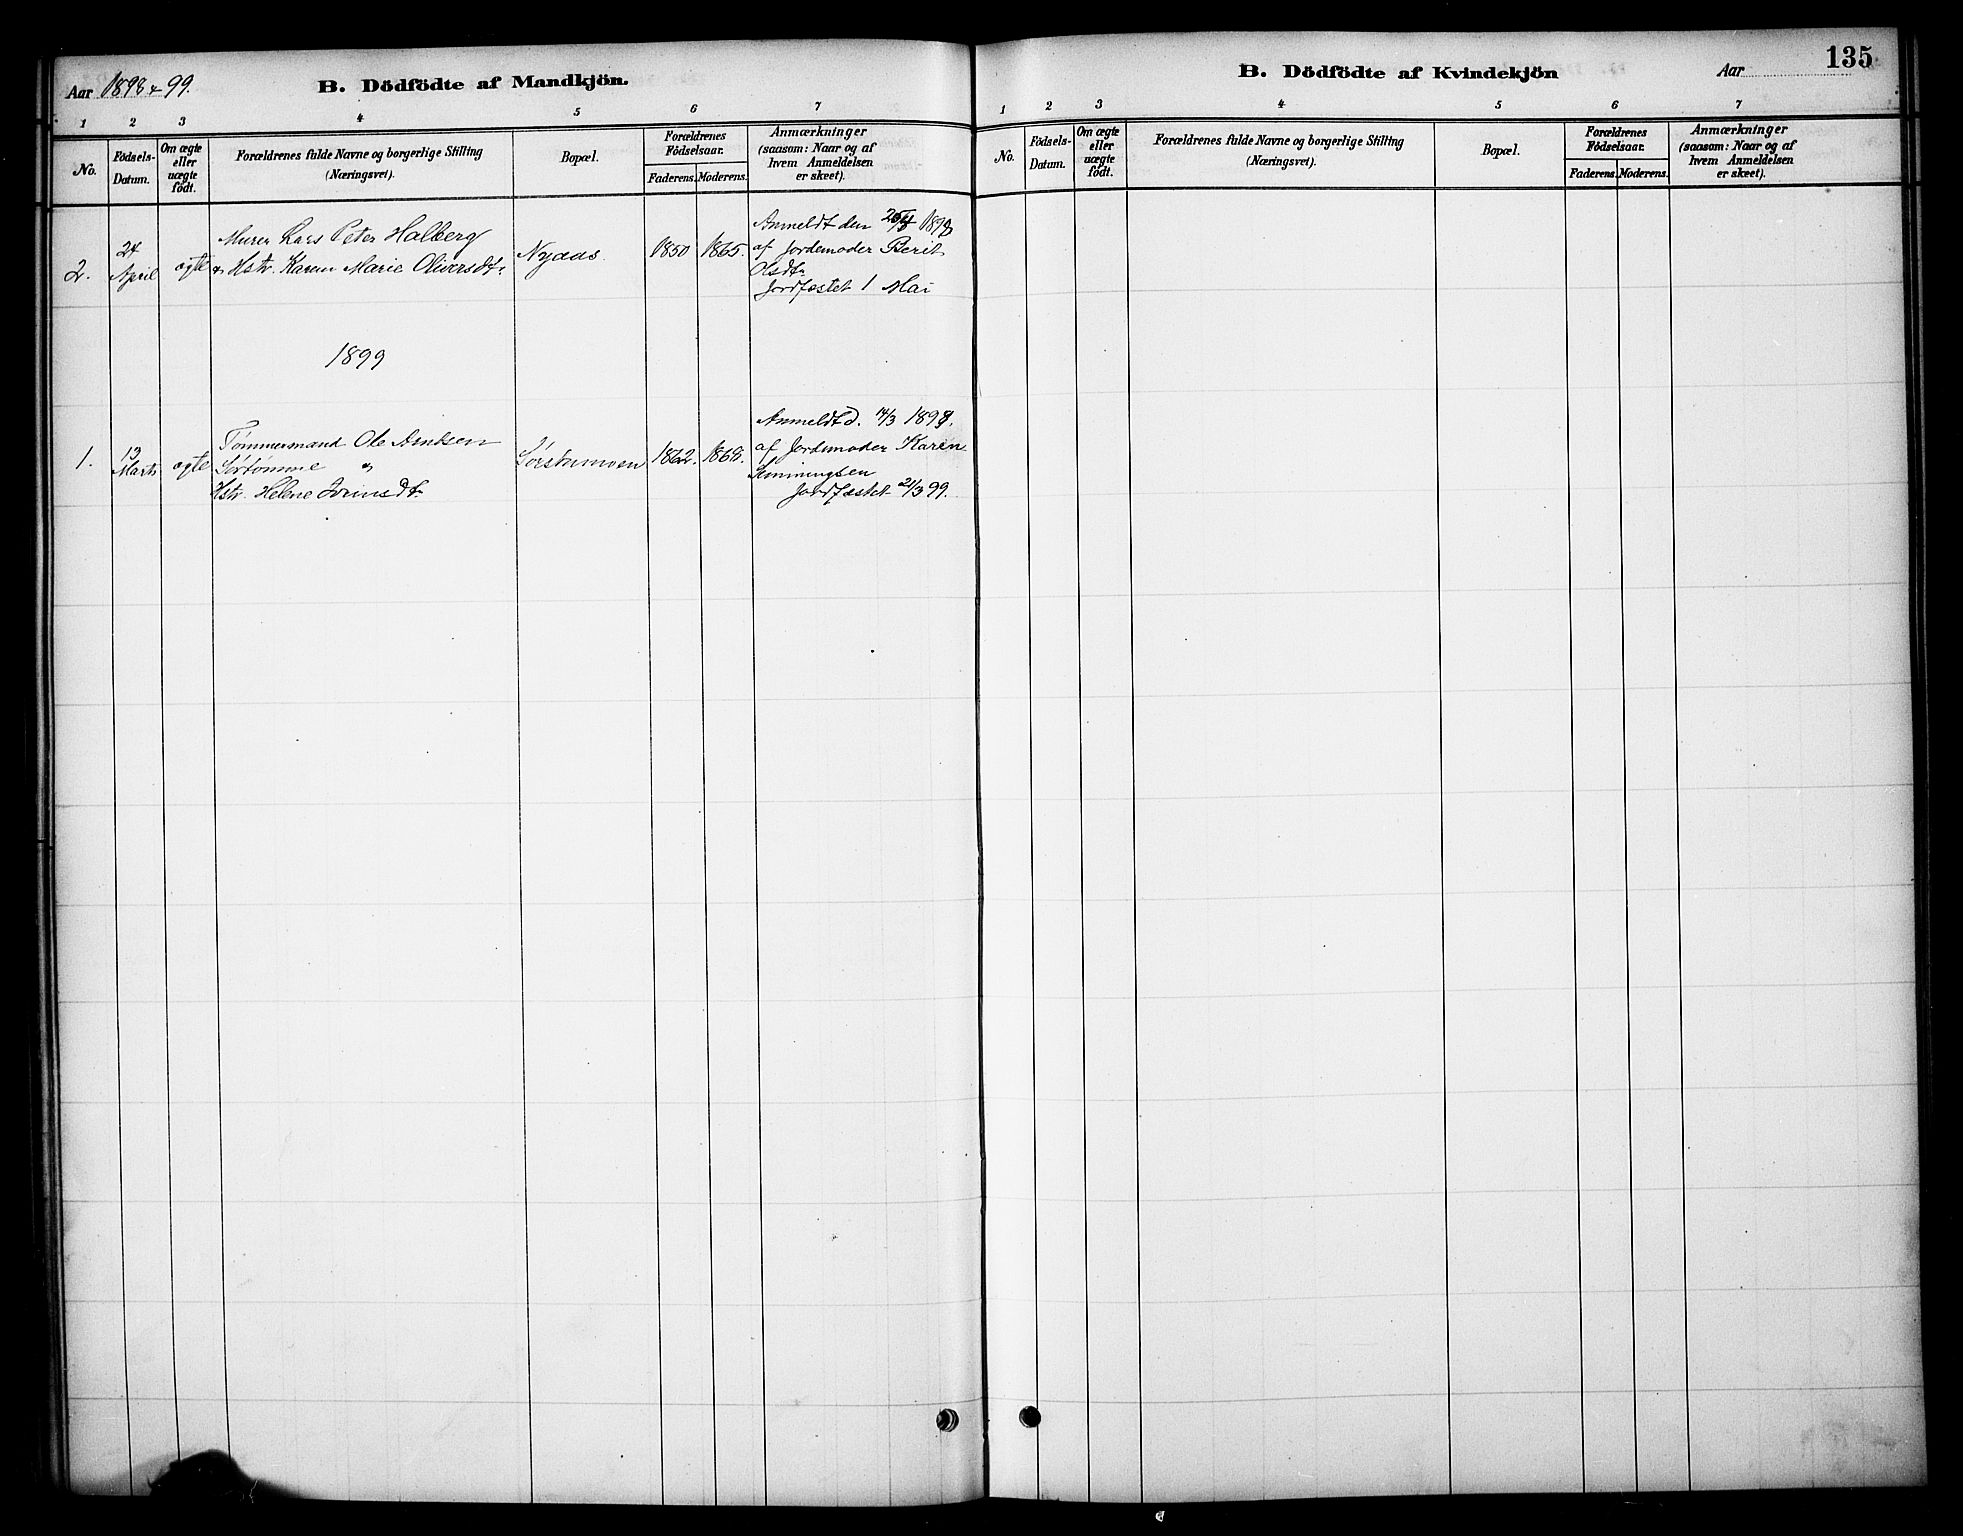 Aar 1898 & 99.
B. Dödfödte af Mandkjön.
1 2 3 4 5 6 7
No.
Födsels-Datum.
Om ægte eller uægte født.
Forældrenes fulde Navne og borgerlige Stilling
(Næringsvei).
Bopæl.
Forældrenes Födselsaar.
Faderens. Moderens.
Anmærkninger
(saasom: Naar og af
hvem Anmeldelsen
er skeet).
2.
24
April
ægte
Murer Lars Peter Halberg
& Hstr. Karen Marie Oliversdtr
Nyaas
1850
1865.
Anmeldt den 25/4 1898
af Jordemoder Berit
Olsdtr
Jordfæstet 1 Mai
1899
1.
13
Marts
ægte
Tømmermand Ole Arntsen
Sørtømme &
Hstr. Helene
1862.
1868.
Anmeldt d. 14/3 1899.
af Jordemoder Karen
Jordfæstet 21/3 99.
B. Dödfödte af Kvindekjön
Aar
135
1 2 3 4 5 6 7
No.
Födsels-
Datum.
Om ægte
eller
uægte
födt.
Forældrenes fulde Navne og borgerlige Stilling
(Næringsvei).
Bopæl.
Forældrenes
Födselsaar.
Faderens. Moderens.
Anmærkninger
(saasom: Naar og af
hvem Anmeldelsen
er skeet).